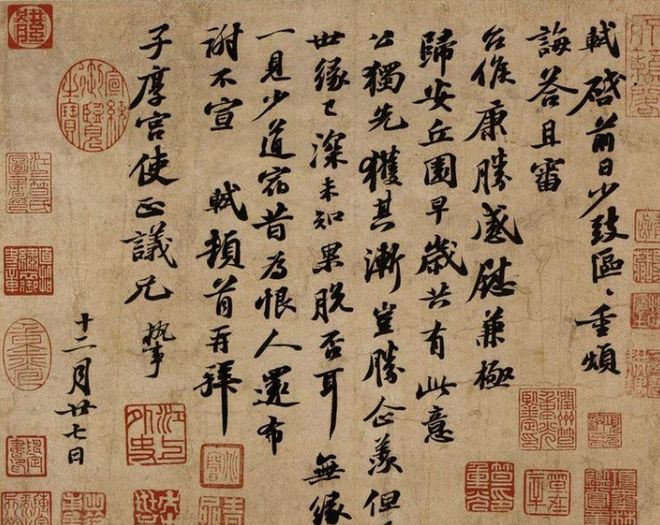 軾啓前日少致區〻重煩
誨答且審
台候康勝感慰兼極
歸安丘園早歲共有此意
公獨先獲其漸豈勝企羨但
世緣已深未知果脫否耳 無緣
一見少道宿昔為恨人還布
謝不宣 軾頓首再拜
子厚宮使正議兄 執事
十二月廿七日
宣統御覽之寶
江上外史